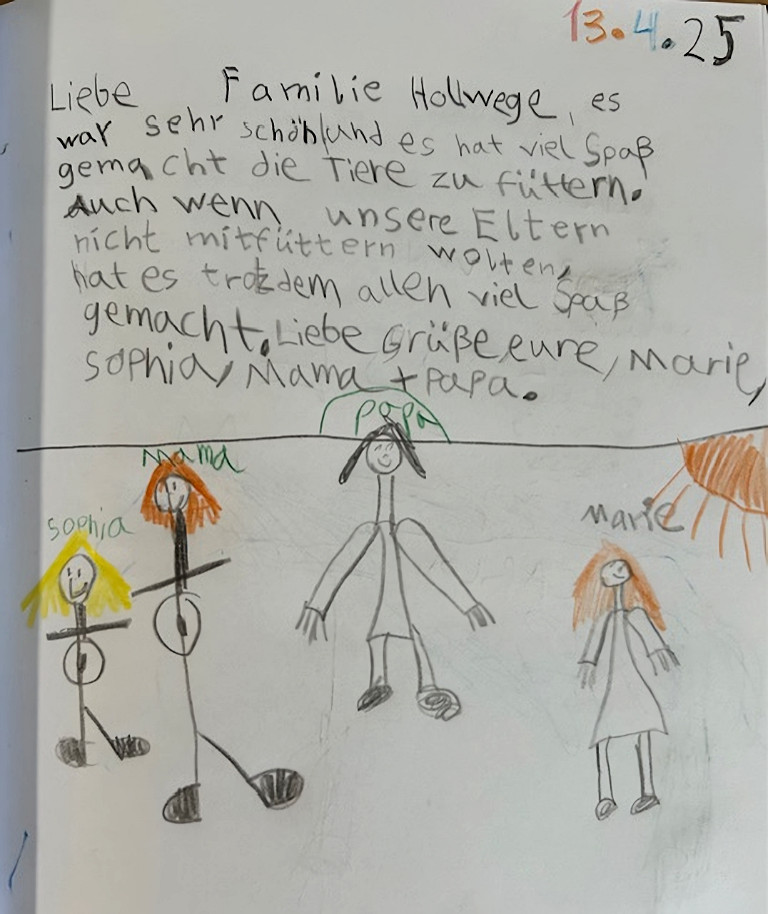 13.4.25
Liebe Familie Hollwege, es
war sehr schöh und es hat viel Spaß
gemacht die Tiere zu füttern.
Auch wenn unsere Eltern
nicht mitfüttern wolten,
hat es trotzdem allen viel Spaß
gemacht. Liebe Grüße, eure, Marie,
Sophia, Mama + Papa.
Papa
Mama
Sophia
Marie